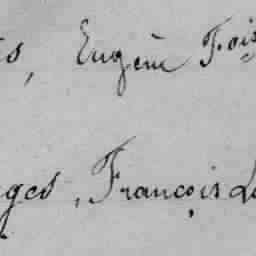 s, Eugène Fois
ges, François L